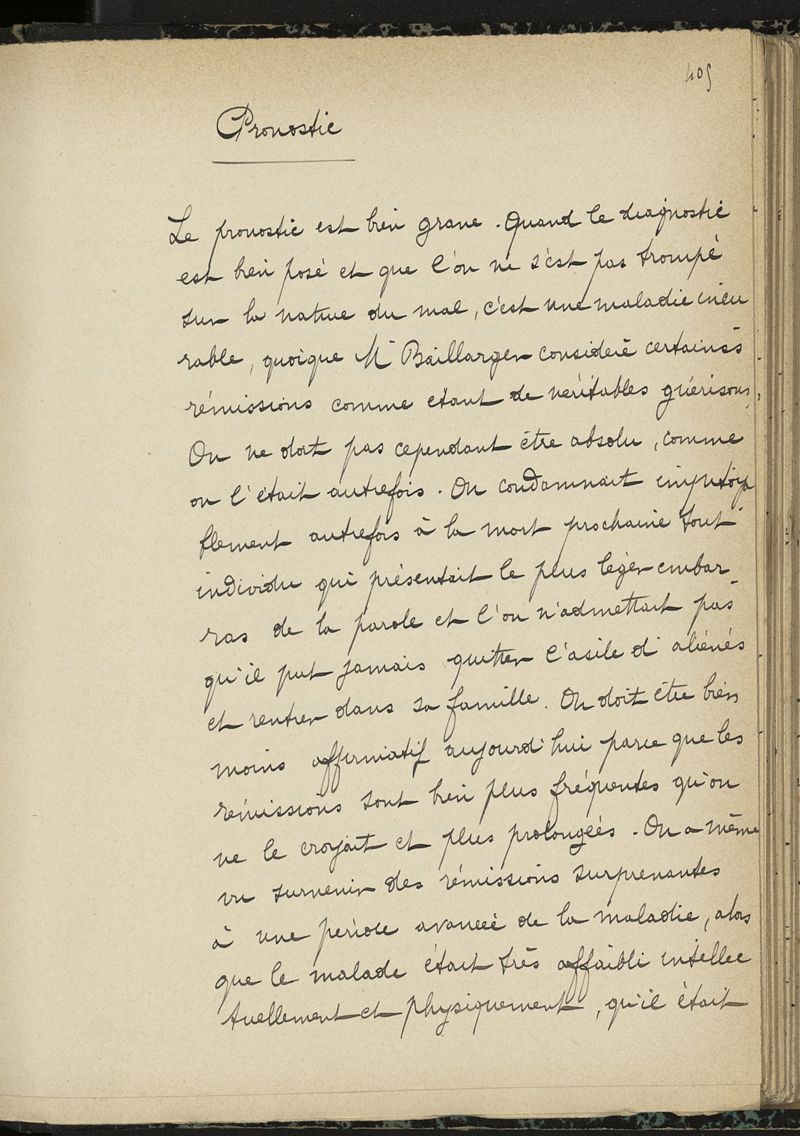 405
Pronostic
Le pronostic est bien grave. Quand le diagnostic
est bien posé et que l'on ne s'est pas trompé
sur la nature du mal, c'est une maladie incu
rable, quoique Mr Baillarger considère certaines
rémissions comme étant de véritables guérisons.
On ne doit pas cependant être absolu, comme
on l'était autrefois. On condamnait impitoya
blement autrefois à la mort prochaine tout
individu qui présentait le plus léger embar
ras de la parole et l'on n'admettait pas
qu'il put jamais quitter l'asile d'aliénés
et rentrer dans sa famille. On doit être bien
moins affirmatif aujourd'hui parce que les
rémissions sont bien plus fréquentes qu'on
ne le croyait et plus prolongées. On a même
vu survenir des rémissions surprenantes
à une période avancée de la maladie, alors
que le malade était très affaibli intellec
tuellement et physiquement, qu'il était